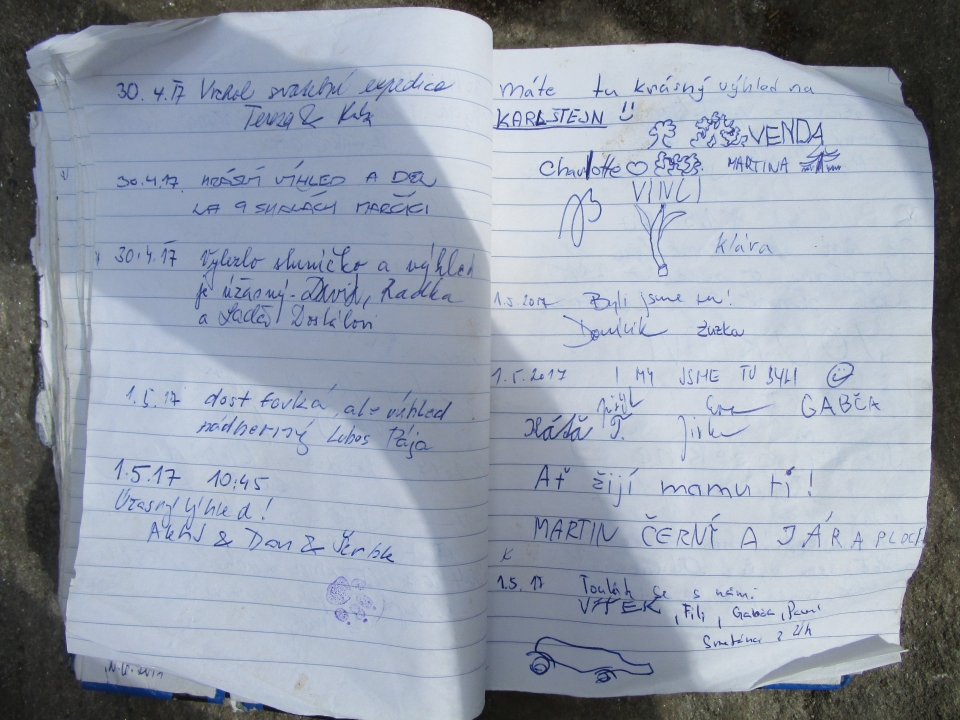 30.4.17 Vrchol svatební expedice
Tereza &
30.4.17. KRÁSNÝ VÍHLED A DEN
NA 9 SKALÁCH MARČÍCI
30.4.17 Vylezlo sluníčko a výhled
je úžasný - David, Radka
a Laděk Doskálovi
1.5.17 dost fouká, ale výhled
nádherný Lubos Pája
1.5.17 10:45
Úžasný výhled!
Aleš & Dan &
máte tu krásný výhled na
KARLSTEJN
VENDA
Charlotte MARTINA
VIVCI
Klára
1.5.2017 Byli jsme tu!
Dominik Zuzka
1.5.2017 I MY JSME TU BYLI
GABČA
Káťa T. Jirka
Ať žijí mamuti!
MARTIN ČERNÝ A JÁRA PLOCEK
1.5.17 Toulat se s námi
VÍTEK, Fili, Gabča, Pavel
Smetána z UH